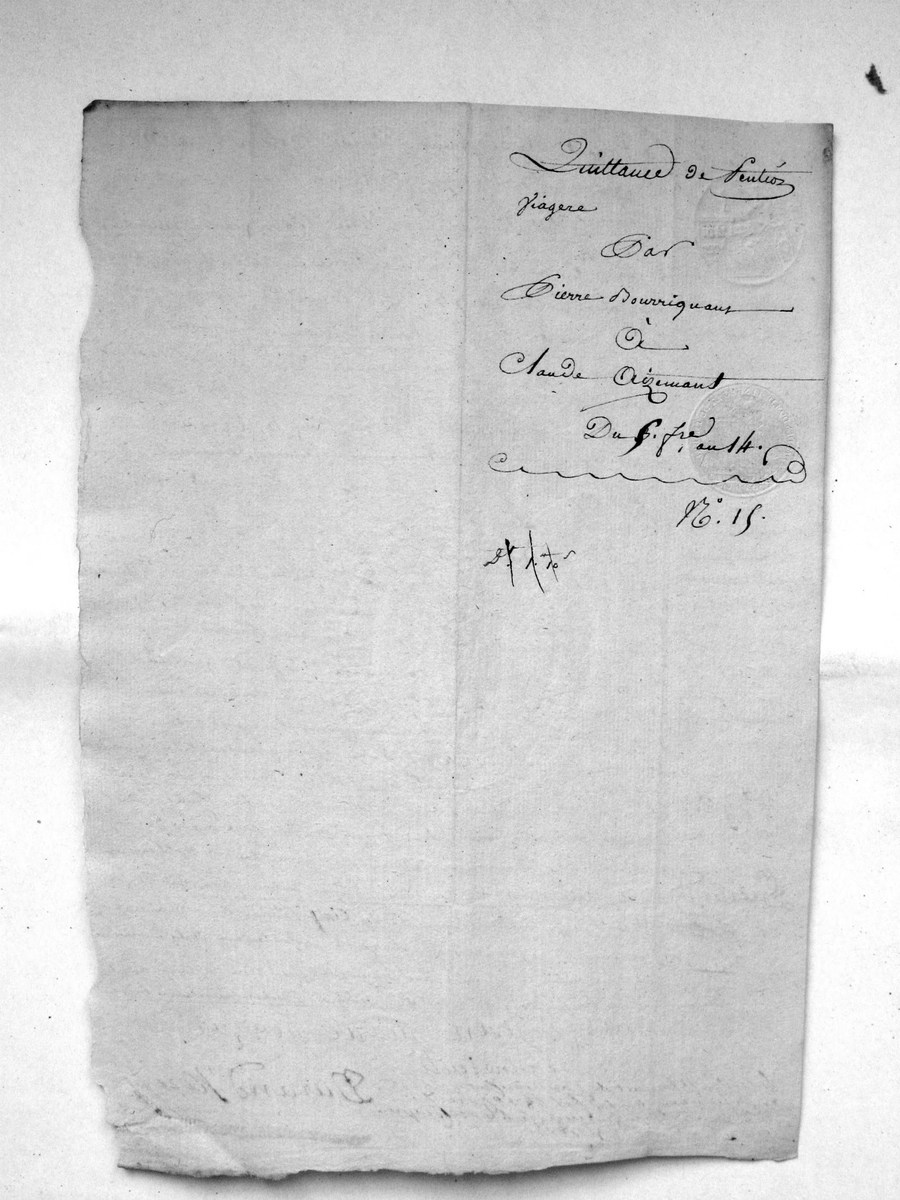 Quittance de Pention
viagere
Par
Pierre Bourriquant
à
Claude Aizemant
Du 6. fre an 14.
N.° 15.